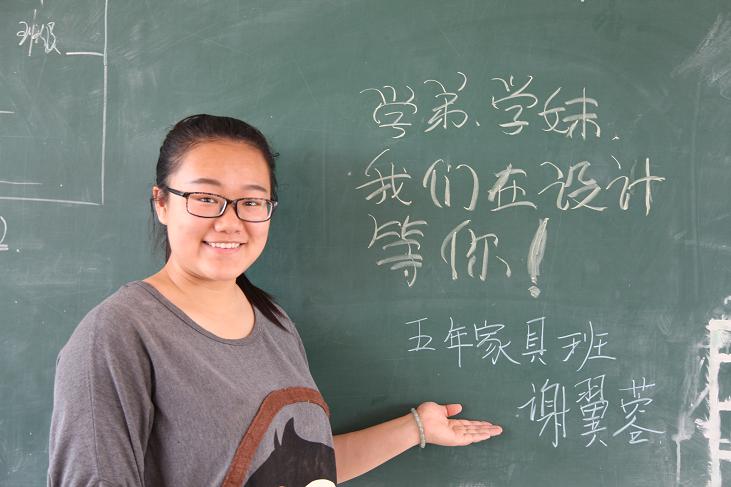 班级
学弟、学妹,
我们在设计
等你!
五年家具班
谢翼蓉